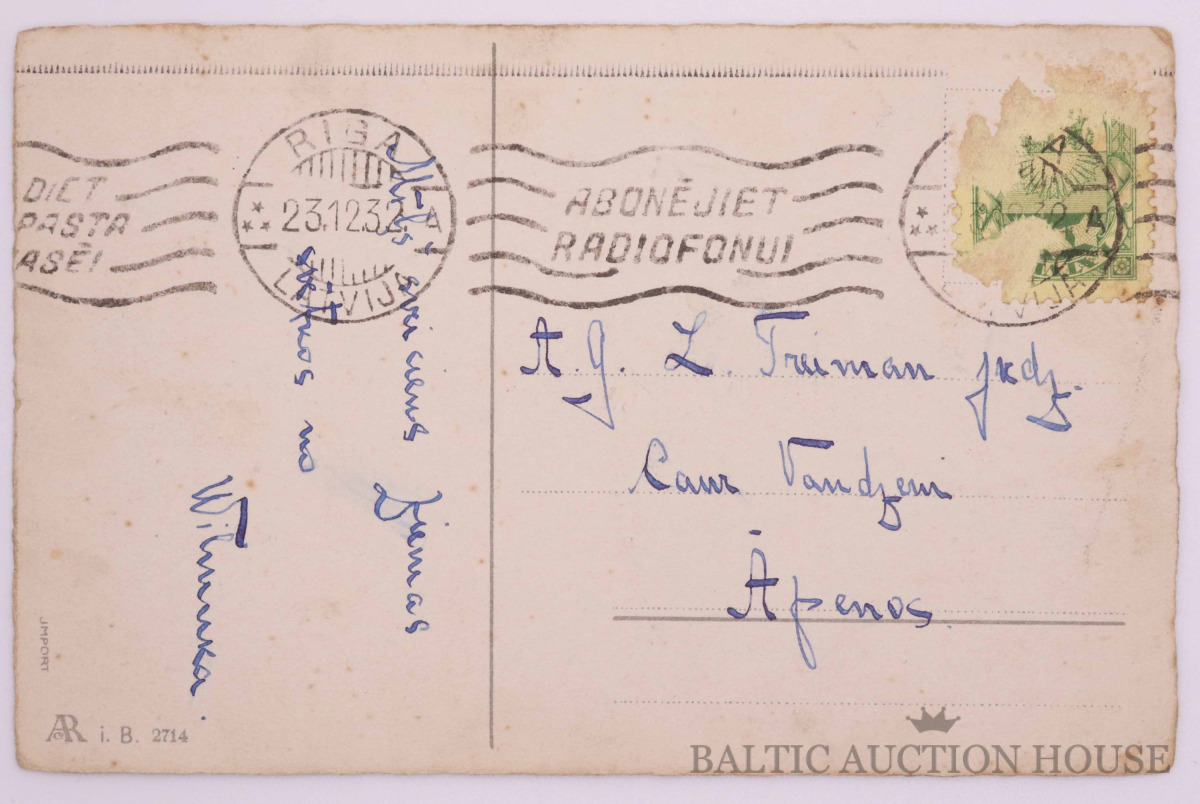 DIET
PASTA
ASĒ!
RIGA
23.12.32.-A
LATVIJA
ABONĒJIET
RADIOFONU!
A
Mīļš sveiciens Ziemas
svētkos no
Wilmuka.
A. G. L. Treiman jkdz.
Caur Vandzeni
Āpenos.
JMPORT
AR i. B. 2714
BALTIC AUCTION HOUSE